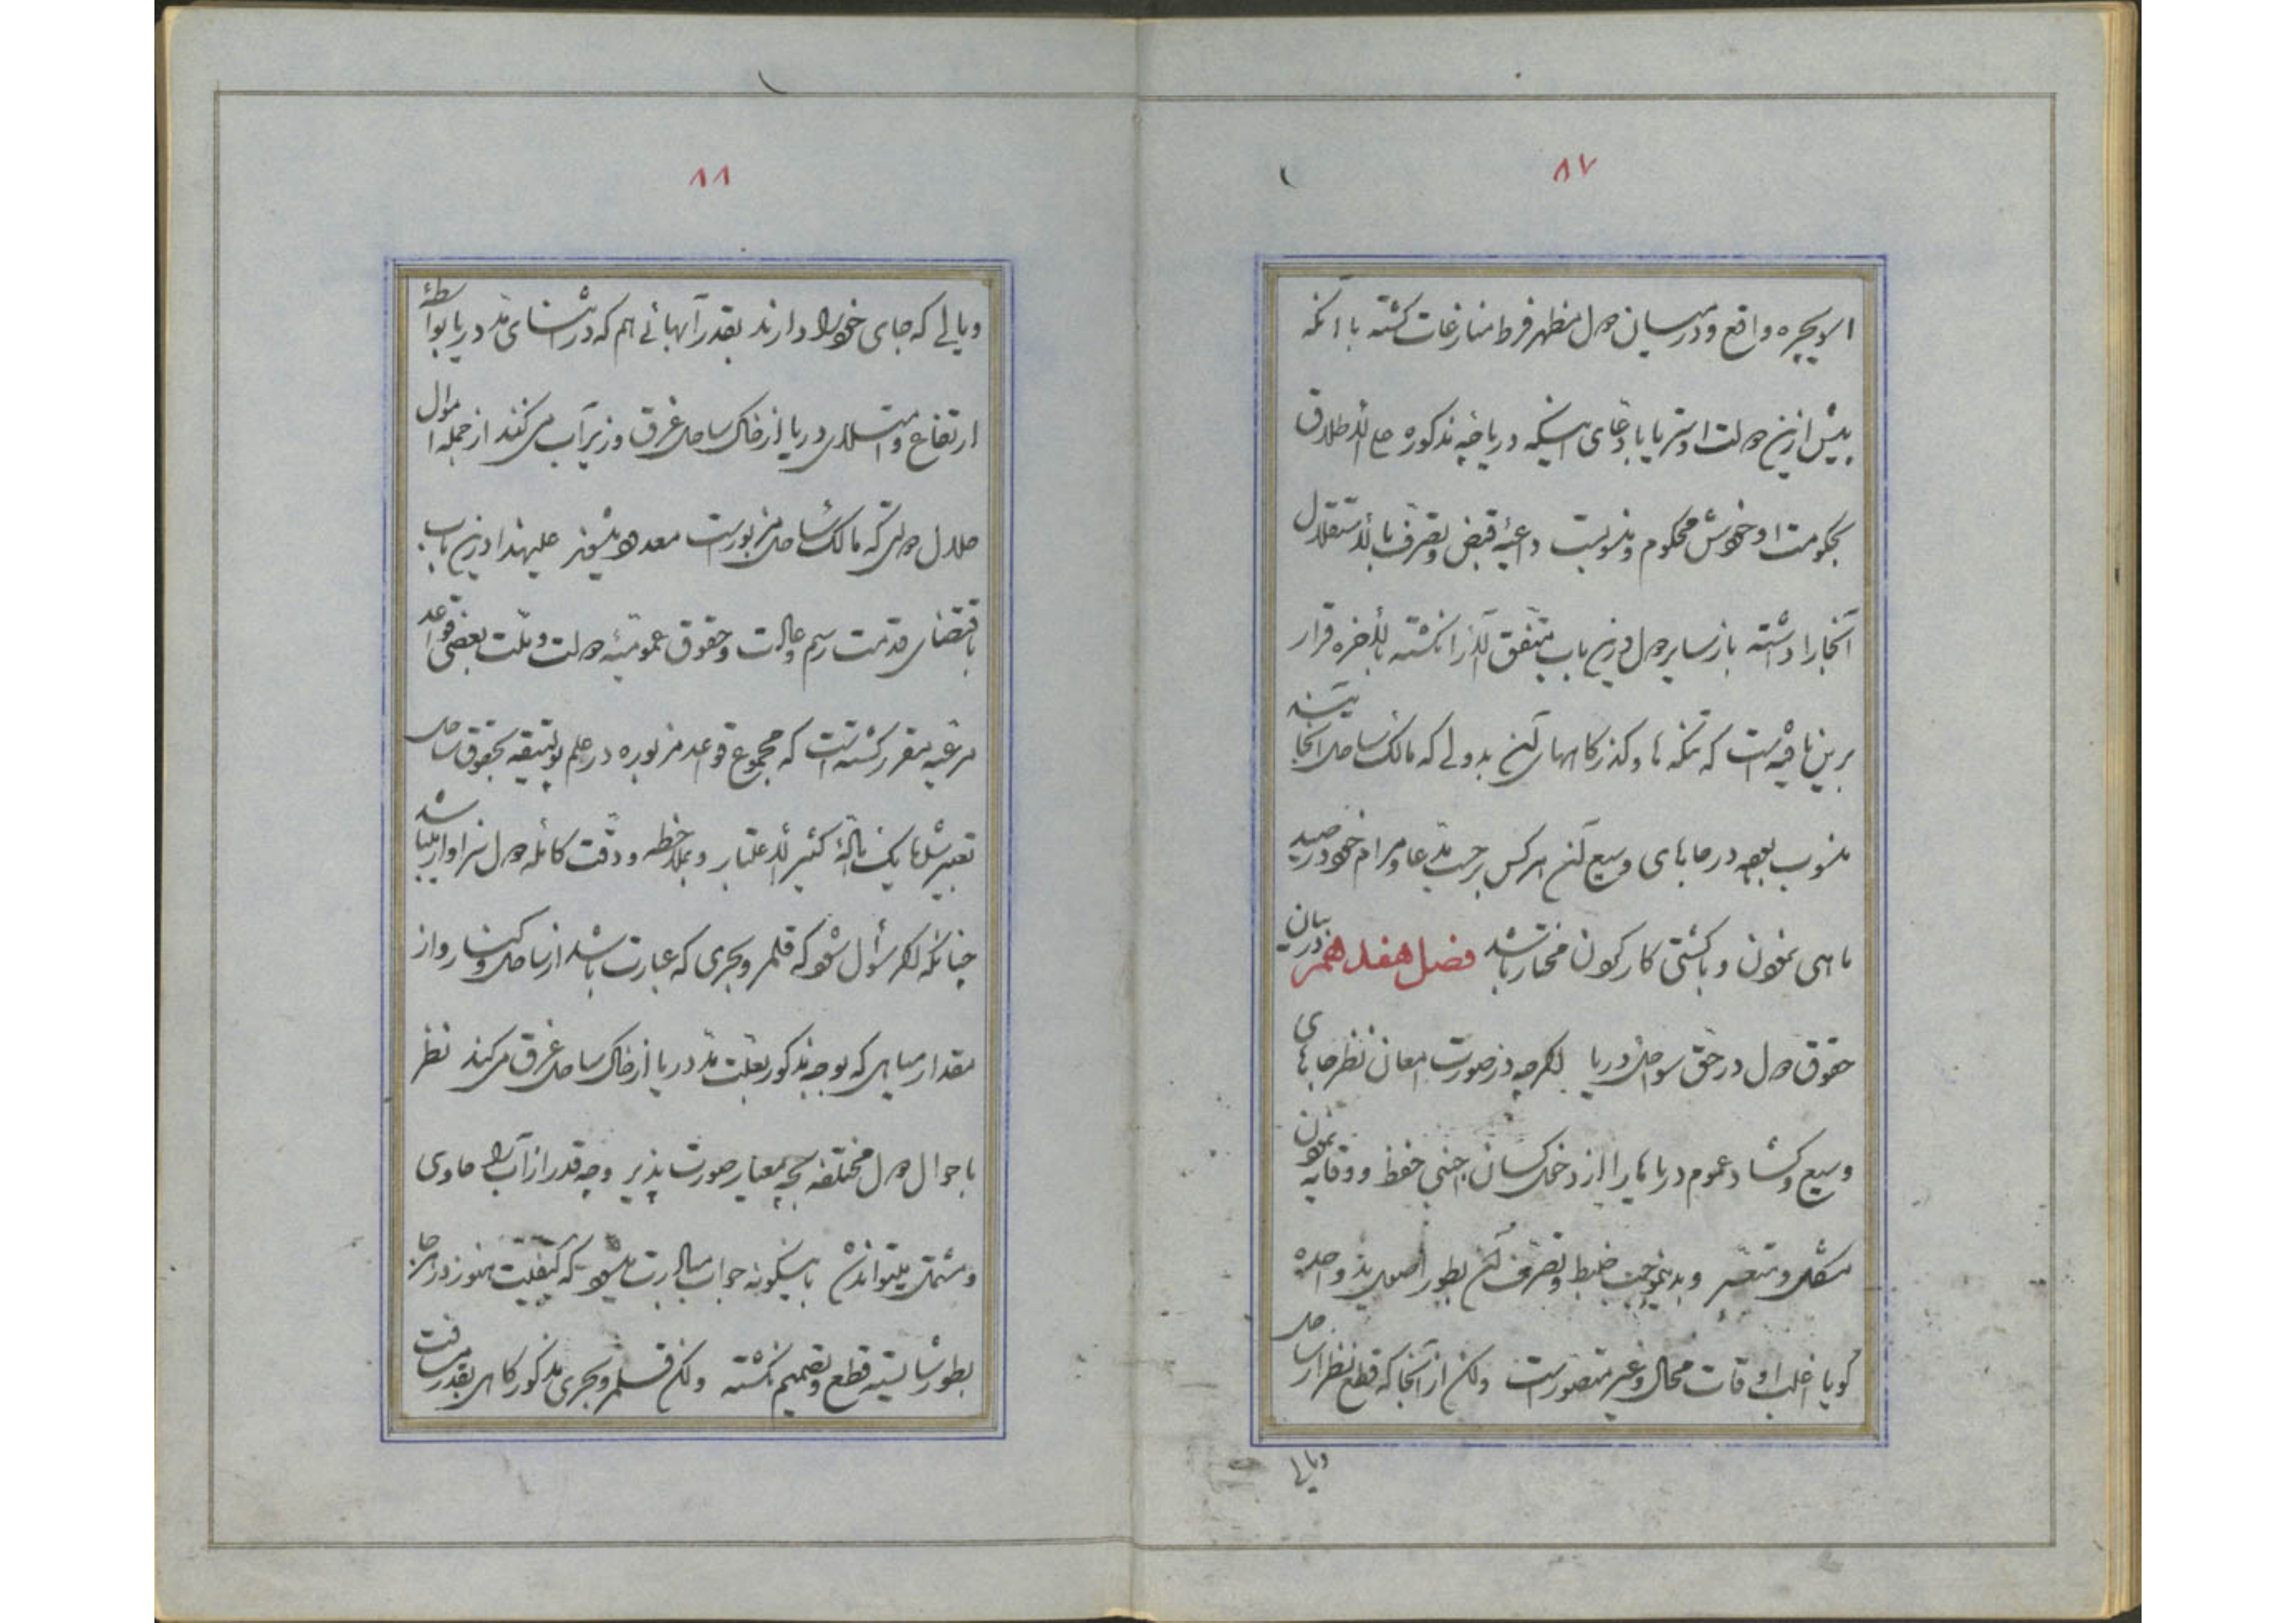 ۸۷
اسویچره واقع و در میان دول منظهر فرط منازعات کشته با آنکه
پیش ازین دولت اوستریا با دعای اینکه دریاچه مذکوره علی الاطلاق
بحکومت او خودش محکوم و منسوبست داعیهٔ قبض و تصرف بالاستقلال
آنجا را داشته باز سایر دول درین باب متفق الآرا نکشته بالأخره قرار
برین یافته است که تنکه ها و کذرکاههای آن بدولی که مالک ساحل آنجا یند
منسوب بوده در جاهای وسیع آن هرکس برحسب مدعا و مرام خود در صید
ماهی نمودن و با کشتی کار کردن مختار باشد فصل هفدهم در بیان
حقوق دول در حق سواحل دریا اکرچه در صورت امعان نظر جاهای
وسیع و کشاد عموم دریاها را از دخل کسان اجنبی حفظ و وقایه نمودن
مشکل و متعسر و بدینموجب ضبط و تصرف آن بطور اصول ید واحده
کویا اغلب اوقات محال و غیر متصور است ولکن از آنجا که قطع نظر از ساحل
دیالی
۸۸
ویالی که جای خود را دارند بقدر آبهائی هم که در اثنای مد دریا بواسطهٔ
ارتفاع و استیلای دریا از خاک ساحل غرق و زیر آب می کنند از جمله اموال
حلال دولتی که مالک ساحل مزبور است معدود میشوند علیهذا درین باب
باقتضای قدمت رسم و عادت و حقوق عمومیهٔ دولت و ملت بعضی قواعد
مرعیه مقرر کشته است که مجموع قواعد مزبوره در علم پولتیقه بحقوق ساحل
تعبیر شده یک مادهٔ کثیر الاعتبار و بملاحظه و دقت کاملهٔ دول سزاوار میباشد
چنانکه اکر سؤال شود که قلمرو بحری که عبارت باشد از ساحل و کنار و از
مقدار میاهی که بوجه مذکور بعلت مد دریا از خاک ساحل غرق میکند نظر
باحوال دول مختلفه بچه معیار صورت پذیر و چه قدر از آب را حاوی
و مشتمل میتواند شد باینکونه جواب مبادرت میشود که کیفیت هنوز در هر جا
بطور شایسته قطع و تصمیم نکشته ولکن قلمرو بحری مذکور کاهی بقدر مسافت